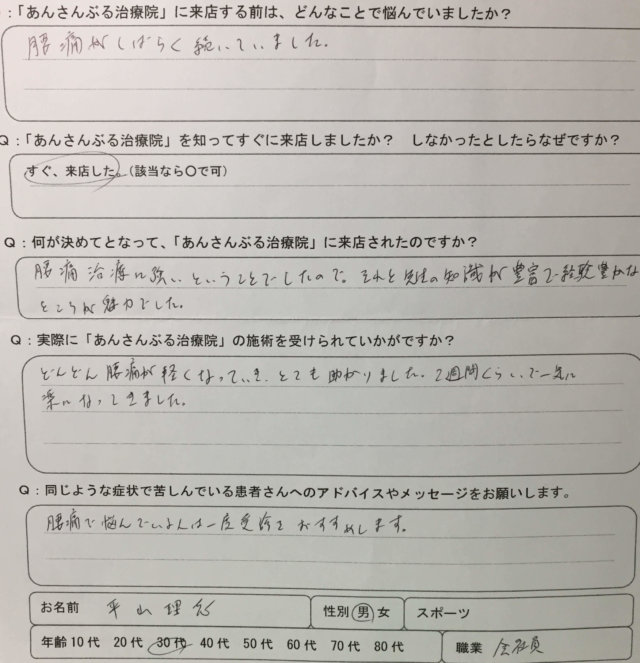 ：「あんさんぶる治療院」に来店する前は、どんなことで悩んでいましたか？
腰痛がしばらく続いていました。
Q：「あんさんぶる治療院」を知ってすぐに来店しましたか？　しなかったとしたらなぜですか？
すぐ、来店した。（該当なら〇で可）
Q：何が決めてとなって、「あんさんぶる治療院」に来店されたのですか？
腰痛治療に強いということでしたので。それと先生の知識が豊富で経験豊かな
ところが魅力でした。
Q：実際に「あんさんぶる治療院」の施術を受けられていかがですか？
どんどん腰痛が軽くなっていき、とても助かりました。2週間くらいで一気に
楽になってきました。
Q：同じような症状で苦しんでいる患者さんへのアドバイスやメッセージをお願いします。
腰痛で悩んでいる人は一度受診をおすすめします。
お名前　平山理　性別 男 女　スポーツ
年齢 10代　20代　30代　40代　50代　60代　70代　80代　職業　会社員